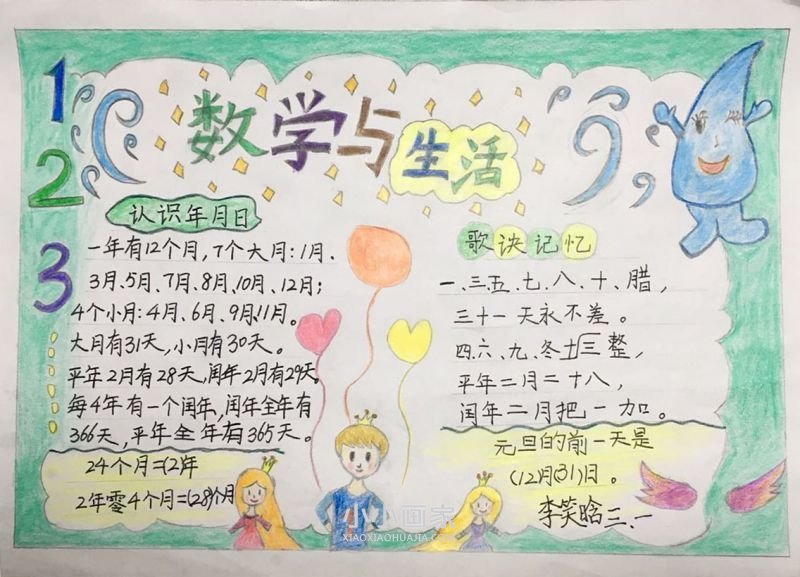 1
2
3
数学与生活
认识年月日
一年有12个月,7个大月:1月、
3月、5月、7月、8月、10月、12月;
4个小月:4月、6月、9月、11月。
大月有31天,小月有30天。
平年2月有28天,闰年2月有29天。
每4年有一个闰年,闰年全年有
366天,平年全年有365天。
24个月=(2)年
2年零4个月=(28)个月
歌诀记忆
一、三、五、七、八、十、腊,
三十一天永不差。
四、六、九、冬三十整,
平年二月二十八,
闰年二月把一加。
元旦的前一天是
(12)月(31)日。
李笑晗 三、一
小小画家
XIAOXIAOHUAJIA.COM